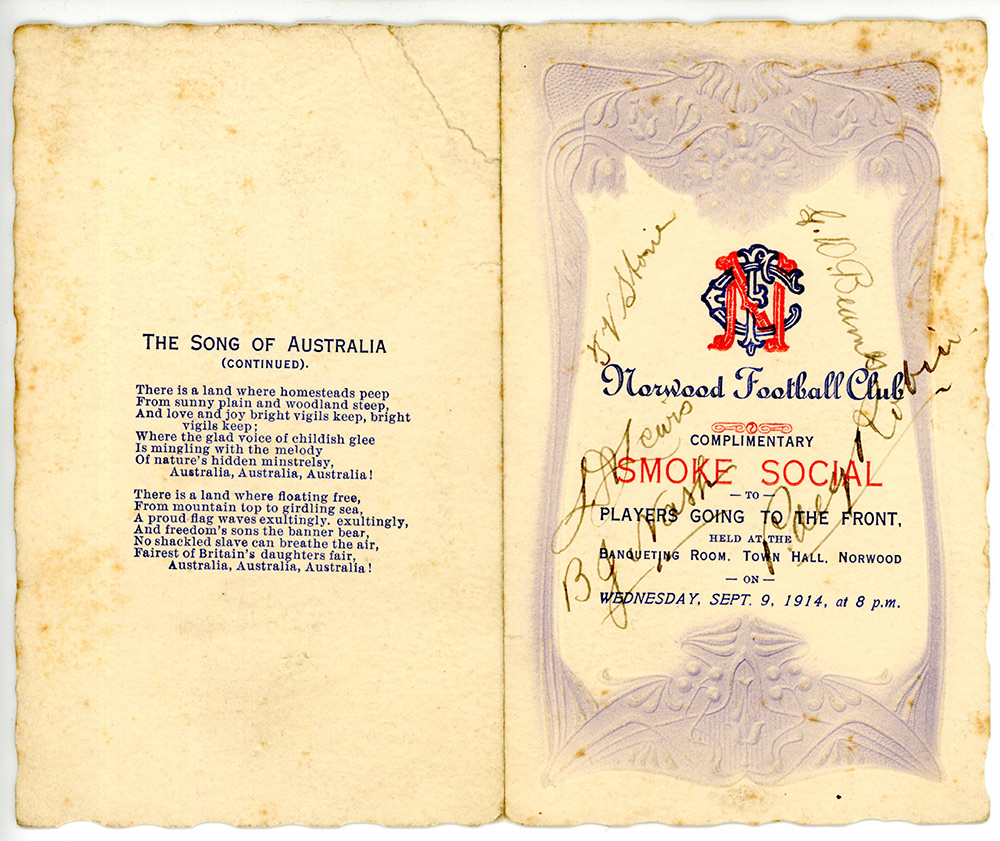 THE SONG OF AUSTRALIA
(CONTINUED).
There is a land where homesteads peep
From sunny plain and woodland steep,
And love and joy bright vigils keep, bright
vigils keep;
Where the glad voice of childish glee
Is mingling with the melody
Of nature's hidden minstrelsy,
Australia, Australia, Australia!
There is a land where floating free,
From mountain top to girdling sea,
A proud flag waves exultingly. exultingly,
And freedom's sons the banner bear,
No shackled slave can breathe the air,
Fairest of Britain's daughters fair,
Australia, Australia, Australia!
NFC
Norwood Football Club
COMPLIMENTARY
SMOKE SOCIAL
— TO —
PLAYERS GOING TO THE FRONT,
HELD AT THE
BANQUETING ROOM, TOWN HALL, NORWOOD
— ON —
WEDNESDAY, SEPT. 9, 1914, at 8 p.m.
V Stone
Percy